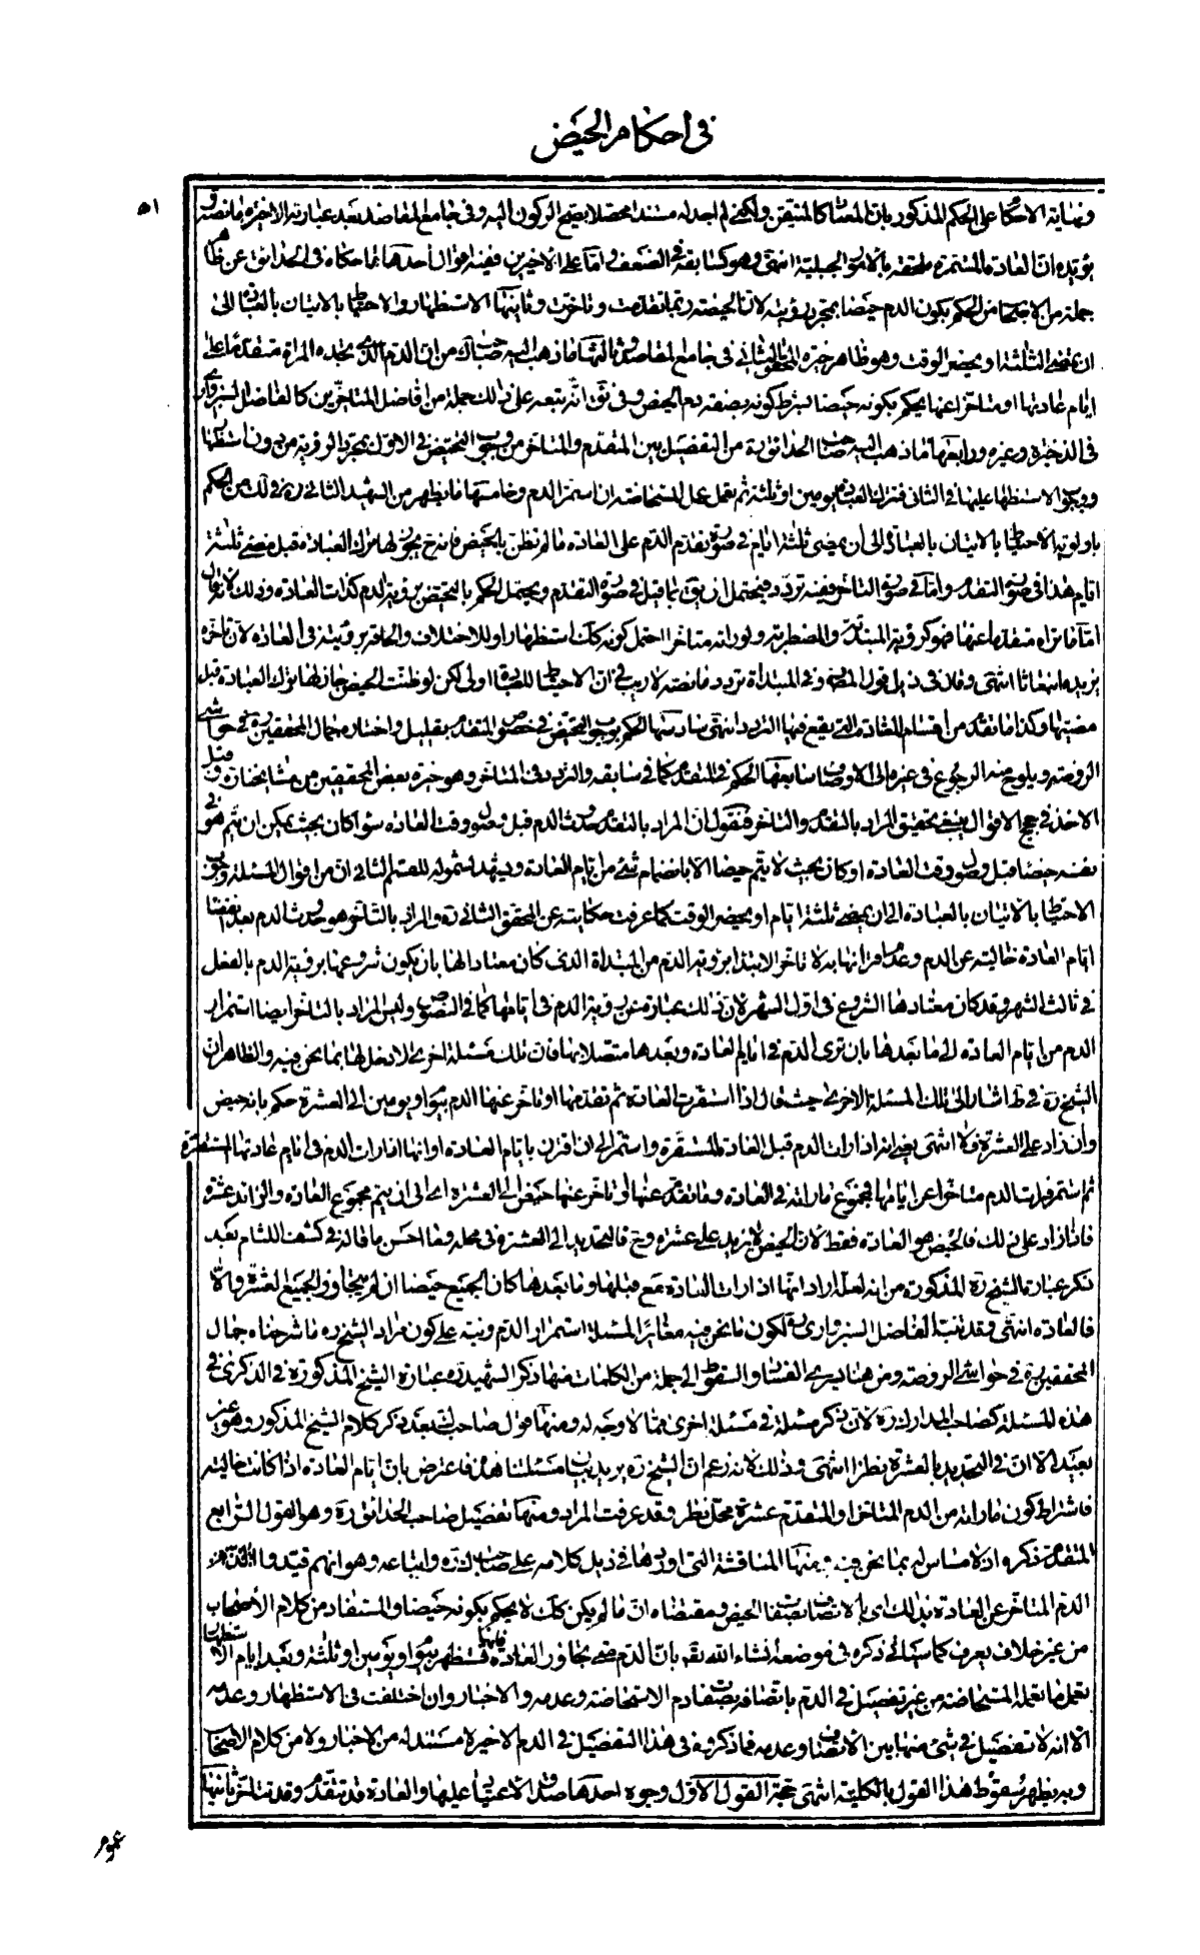 في احكام الحيض
٥١
ونهاية الاحكام على الحكم المذكور بان المعتاد كالمتيقن ولكني لم اجد له مستندا محصلا يصح الركون اليه وفي جامع المقاصد بعد عبارته الاخيرة ما نصه و
يؤيده ان العادة المستمرة ملحقة بالامور الجبلية انتهى وهو كسابقه في الضعف واما على الاخيرين ففيه اقوال احدها ما حكاه في الحدائق عن ظاهر
جملة من الاصحاب من الحكم بكون الدم حيضا بمجرد رؤيته لان الحيضة ربما تقدمت وتاخرت وثانيها الاستظهار والاحتياط بالاتيان بالعبادة الى
ان يمضي الثلثة او يحضر الوقت وهو ظاهر خيرة المحقق الثاني في جامع المقاصد وثالثها ما ذهب اليه صاحب ك من ان الدم الذي تجده المراة متقدما على
ايام عادتها او متاخرا عنها يحكم بكونه حيضا بشرط كونه بصفة دم الحيض وفي ئق انه تبعه على ذلك جملة من افاضل المتاخرين كالفاضل السبزواري
في الذخيرة وغيره ورابعها ما ذهب اليه صاحب الحدائق ره من التفصيل بين المتقدم والمتاخر من وجوب التحيض في الاول بمجرد الرؤية من دون استظهار
ووجوب الاستظهار عليها في الثاني فتترك العبادة يومين او ثلثة ثم تعمل عمل المستحاضة ان استمر الدم وخامسها ما يظهر من الشهيد الثاني ره في لك من الحكم
باولوية الاحتياط بالاتيان بالعبادة الى ان يمضي ثلثة ايام في صورة تقدم الدم على العادة ما لم تظن بالحيض فانه ح يجوز لها ترك العبادة قبل مضي ثلثة
ايام هذا في صورة التقدم واما في صورة التاخر ففيه تردد فيحتمل ان يق بما قيل في صورة التقدم ويحتمل الحكم بالتحيض برؤية الدم كذات العادة وذلك لانه قال
اما ما تراه متقدما عنها فهو كرؤية المبتداة والمضطربة ولو راته متاخرا احتمل كونه كك استظهارا وللاختلاف والحاقه برؤيته في العادة لان تاخره
يزيده انبعاثا انتهى وقال في ذيل قول المصنف وفي المبتداة تردد ما نصه لا ريب في ان الاحتياط للعبادة اولى لكن لو ظنت الحيض جاز لها ترك العبادة قبل
مضيها وكذا ما تقدم من اقسام العادة التي يقع فيها التردد انتهى سادسها الحكم بوجوب التحيض في خصوص المتقدم بقليل واختاره جمال المحققين ره في حواشي
الروضة ويلوح منه الرجوع في غيره الى الاوصاف سابعها الحكم في المتقدم كما في سابقه والتردد في المتاخر وهو خيرة بعض المحققين من مشايخنا ره وقبل
الاخذ في حجج الاقوال ينبغي تحقيق المراد بالمتقدم والمتاخر فنقول ان المراد بالمتقدم حدوث الدم قبل حضور وقت العادة سواء كان بحيث يمكن ان يتم هو في
نفسه حيضا قبل حضور وقت العادة او كان بحيث لا يتم حيضا الا بانضمام شيء من ايام العادة ويشهد لشموله للقسم الثاني ان من اقوال المسئلة وجوب
الاحتياط بالاتيان بالعبادة الى ان يمضي ثلثة ايام او يحضر الوقت كما عرفت حكايته عن المحقق الثاني ره والمراد بالتاخر هو حدوث الدم بعد انقضاء
ايام العادة خالية عن الدم وعدم اقترانها به لا تاخر الابتداء برؤية الدم من المبتداة الذي كان معتادا لها بان يكون شروعها برؤية الدم بالفعل
في ثالث الشهر وقد كان معتادها الشروع في اول الشهر لان ذلك عبارة عن رؤية الدم في ايامها كما في النصوص وليس المراد بالتاخر ايضا استمرار
الدم من ايام العادة الى ما بعدها بان ترى الدم في ايام العادة وبعدها متصلا بها فان تلك مسئلة اخرى لا دخل لها بما نحن فيه والظاهر ان
الشيخ ره في ط اشار الى تلك المسئلة الاخرى حيث قال اذا استقرت العادة ثم تقدمها او تاخر عنها الدم بيوم او يومين الى العشرة حكم بانه حيض
وان زاد على العشرة فلا انتهى يعني انه اذا رات الدم قبل العادة المستقرة واستمر الى ان اقترن بايام العادة او انها اذا رات الدم في ايام عادتها المستقرة
ثم استمر فرات الدم متاخرا عن ايامها فمجموع ما راته في العادة وما تقدم عنها او تاخر عنها حيض الى العشرة اي الى ان يتم مجموع العادة والزائد عشرة
فاذا زاد على ذلك فالحيض هو العادة فقط لان الحيض لا يزيد على عشرة وح فالتحديد الى العشرة في محله وما احسن ما قاله في كشف اللثام بعد
ذكر عبارة الشيخ ره المذكورة من انه لعله اراد انها اذا رات العادة مع قبلها وما بعدها كان الجميع حيضا ان لم يتجاوز الجميع العشرة والا
فالعادة انتهى وقد تنبه الفاضل السبزواري ره لكون ما نحن فيه مغايرا لمسئلة استمرار الدم ونبه على كون مراد الشيخ ره ما شرحناه جمال
المحققين ره في حواشي الروضة ومن هنا يسري الفساد والسقوط الى جملة من الكلمات منها ذكر الشهيد ره عبارة الشيخ المذكورة في الذكرى في
هذه المسئلة كصاحب المدارك ره لان ذكر مسئلة في مسئلة اخرى مما لا وجه له ومنها قول صاحب ك بعد ذكر كلام الشيخ المذكور وهو غير
بعيد الا ان في التحديد بالعشرة نظرا انتهى وذلك لانه زعم ان الشيخ ره يريد بيان مسئلتنا هذه فاعترض بان ايام العادة اذا كانت خالية
فاشتراط كون ما راته من الدم المتاخر او المتقدم عشرة محل نظر وقد عرفت المراد ومنها تفصيل صاحب الحدائق ره وهو القول الرابع
المتقدم ذكره اذ لا مساس له بما نحن فيه ومنها المناقشة التي اوردها في ذيل كلامه على صاحب ك ره واتباعه وهو انهم قيدوا
الدم المتاخر عن العادة بذلك اي بالاتصاف بصفات الحيض ومقتضاه ان ما لم يكن كك لا يحكم بكونه حيضا والمستفاد من كلام الاصحاب
من غير خلاف يعرف كما سياتي ذكره في موضعه انشاء الله تعالى بان الدم متى تجاوز العادة فانها تستظهر بيوم او يومين او ثلثة وبعد ايام الاستظهار
تعمل ما تعمله المستحاضة من غير تفصيل في الدم باتصافه بصفة دم الاستحاضة وعدمه والاخبار وان اختلفت في الاستظهار وعدمه
الا انه لا تفصيل في شيء منها بين الاتصاف وعدمه فما ذكروه في هذا التفصيل في الدم الاخير لا مستند له من الاخبار ولا من كلام الاصحاب
وبه يظهر سقوط هذا القول بالكلية انتهى حجة القول الاول وجوه احدها صدق الاعتياد عليها والعادة قد تتقدم وقد تتاخر ثانيها
عموم